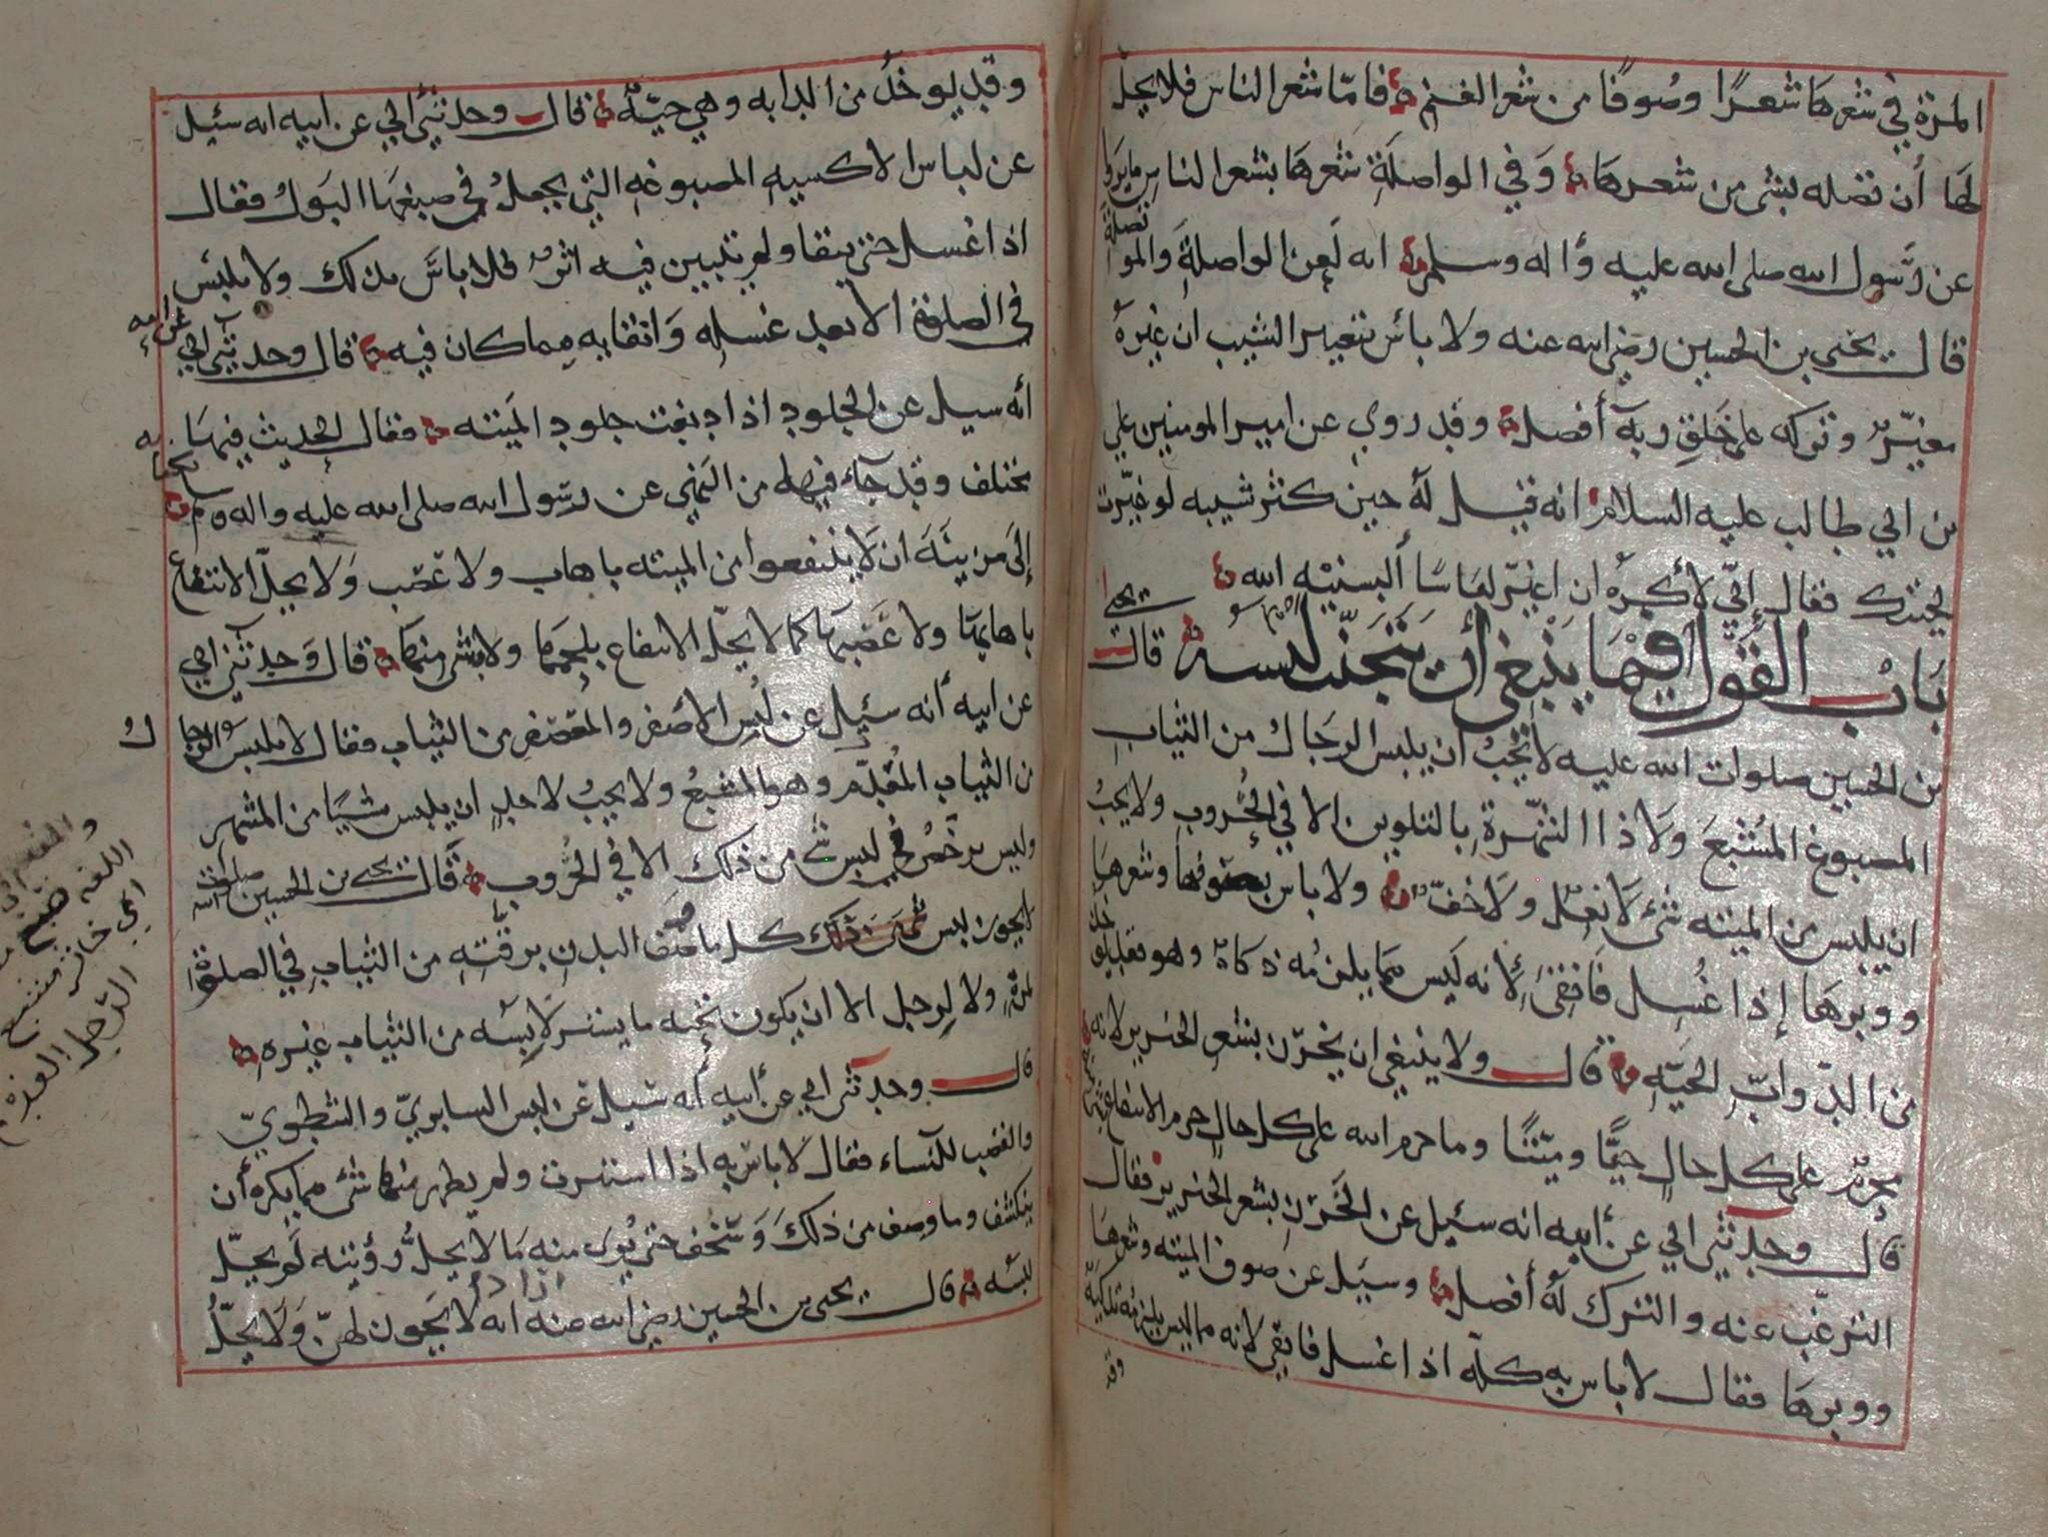 المرة في شعرها شعرًا وصُوفًا من شعر الغنم فامّا شعر الناس فلا يحلّ
لها أن تصله بشى من شعرها وَفي الواصلَة شعرَها بشعر الناس ما يروا
عن رَّسول الله صلى الله عليه وأاله وسلم انه لَعن الواصلةَ والمو
تصلة
قال يحيى بن الحسين رضي الله عنه ولا بأس بتغيير الشيب ان غيرهُ
مغيّرٌ وتركه على خَلقِ ربه أفضل وقد روي عن امير المومنين علي
بن ابي طالب عليه السلام انه قيل لهُ حين كثر شيبه لو غيّرت
لحيتك فقال إنّي لأكرهُ ان اغيّر لباسًا ألبسنيْه الله
بَابُ القَول فيْمَا يَنْبغي أن يتجَنّب لبسه قال يحيى
بن الحسين صلوات الله عليه لا نحُبُّ ان يلبس الرجال من الثياب
المصبوغ المُشْبَعَ ولا ذا الشّهْرة بالتلوين الا في الحُروب ولا يحبُّ
ان يلبس من الميته شئ لا نَعْل ولَا خُفّ ولا باس بصوفها وشعرها
ووبرها إذا غُسِل فانقىَ لِأنه لَيس مما يلزمُه ذكاة وهو فقد يوخذ
من الدّوابّ الحيّه قال ولا ينبغي ان يخرّز بشعر الخنزير لانه
محرمٌ على كل حالٍ حيًّا وميّتًا وما حرم الله على كل حالٍ حرم الانتفاع به
قال وحدثني ابي عن أبيه انه سئيل عن الخَرز بشعر الخنزير فقال
الترغّب عنه والترك لهُ أفضل وسيَل عن صوف الميته وشعرها
ووبرها فقال لا باس به كلّه اذا غسل فانقى لانه مما ليس يلزمه تذكيَة
وقد
وقد يوخذُ من الدابه وهي حيّةٌ قال وحدثني أبي عن ابيه انه سئيل
عن لباس الاكسيه المصبوغه التي يجعلُ في صبغها البَولُ فقال
اذا غسل حتى ينقا ولم يتبين فيه اثرٌ فلا باسَّ بذلك ولا يلبس
في الصلوة الا بعد غسله وَانقايه مِما كان فيه قال وحدثني ابي
عن ابيه
أنه سيل عن الجلود اذا دبغت جلود الميته فقال الحديث فيها
مختلف وقد جآء فيها من النهي عن رسول الله صلى الله عليه واله وسلم
إلى مزينَة ان لا ينتفعوا من الميته باهاب ولا عَصَب وَلا يحلّ الانتفاع
باهابها ولا عَصَبها كما لا يحلّ الانتفاع بلحمها ولا بشي منها قال وَحدثني ابي
عن ابيه أنه سئيل عن لُبس الاصفر والمُعَصْفر من الثياب فقال لا يلبس الرجا
ل
من الثياب المُفْدَم وهو المشبعُ ولا يحبُ لاحدٍ ان يلبس شيًا من المشهر
وليس يرَخصُ في لبس شيْ من ذلك الا في الحُروب قَال يحيى بن الحسين صلوات الله
لا يجوز لبس كل ما وصَف البدن برقّتِهِ من الثياب في الصلوة
لمرةٍ ولا لِرجل الا ان يكون تحتِه ما يستر لابِسَه من الثياب غيره
قال وحدثني ابي عن أبيه أنه سئيل عن لبس السابوريّ والشطويّ
والقصب للنساء فقال لا باس به اذا استترت ولم يظهر منها شئ مما يكره أن
ينكشف وما وصِف من ذلكَ وَسَخُف حتى يُورى منه مَا لا يحلّ رؤيته لم يحلّ
لبسُه قال يحيى بن الحسين رضي الله عنه اذا انه لا يَجوز لهنّ وَلَا يحلُّ
اللغه صبغ
ابي خاثر مشبع